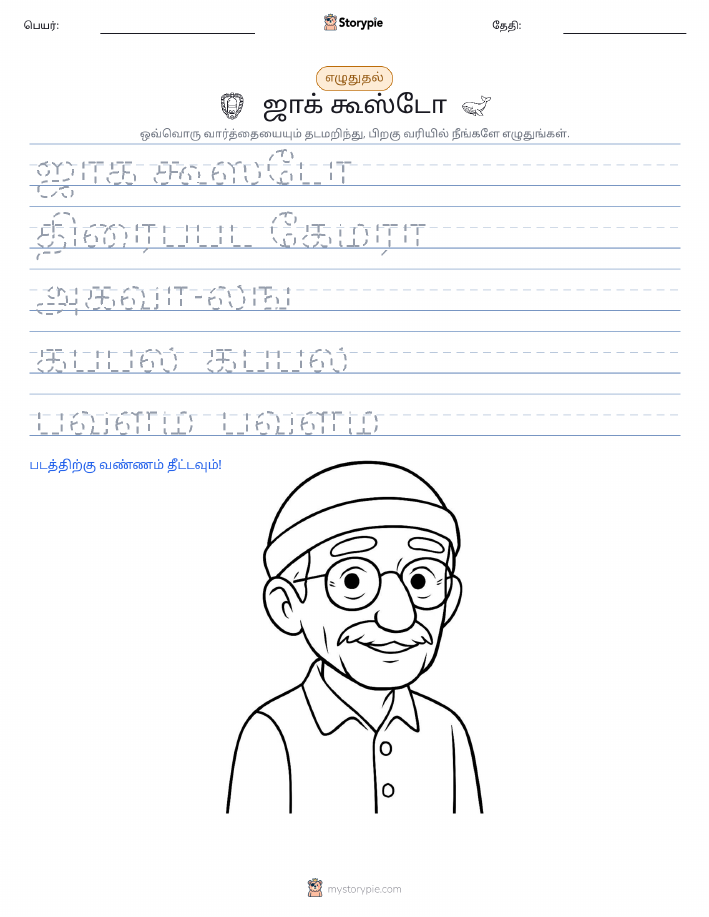 பெயர்:
Storypie
தேதி:
எழுதுதல்
ஜாக் கூஸ்டோ
ஒவ்வொரு வார்த்தையையும் தடமறிந்து, பிறகு வரியில் நீங்களே எழுதுங்கள்.
ஜாக கூஸடோ
திரைபபட கேமரா
அகவா-லங
கபபல் கபபல்
பவளம பவளம
படத்திற்கு வண்ணம் தீட்டவும்!
mystorypie.com